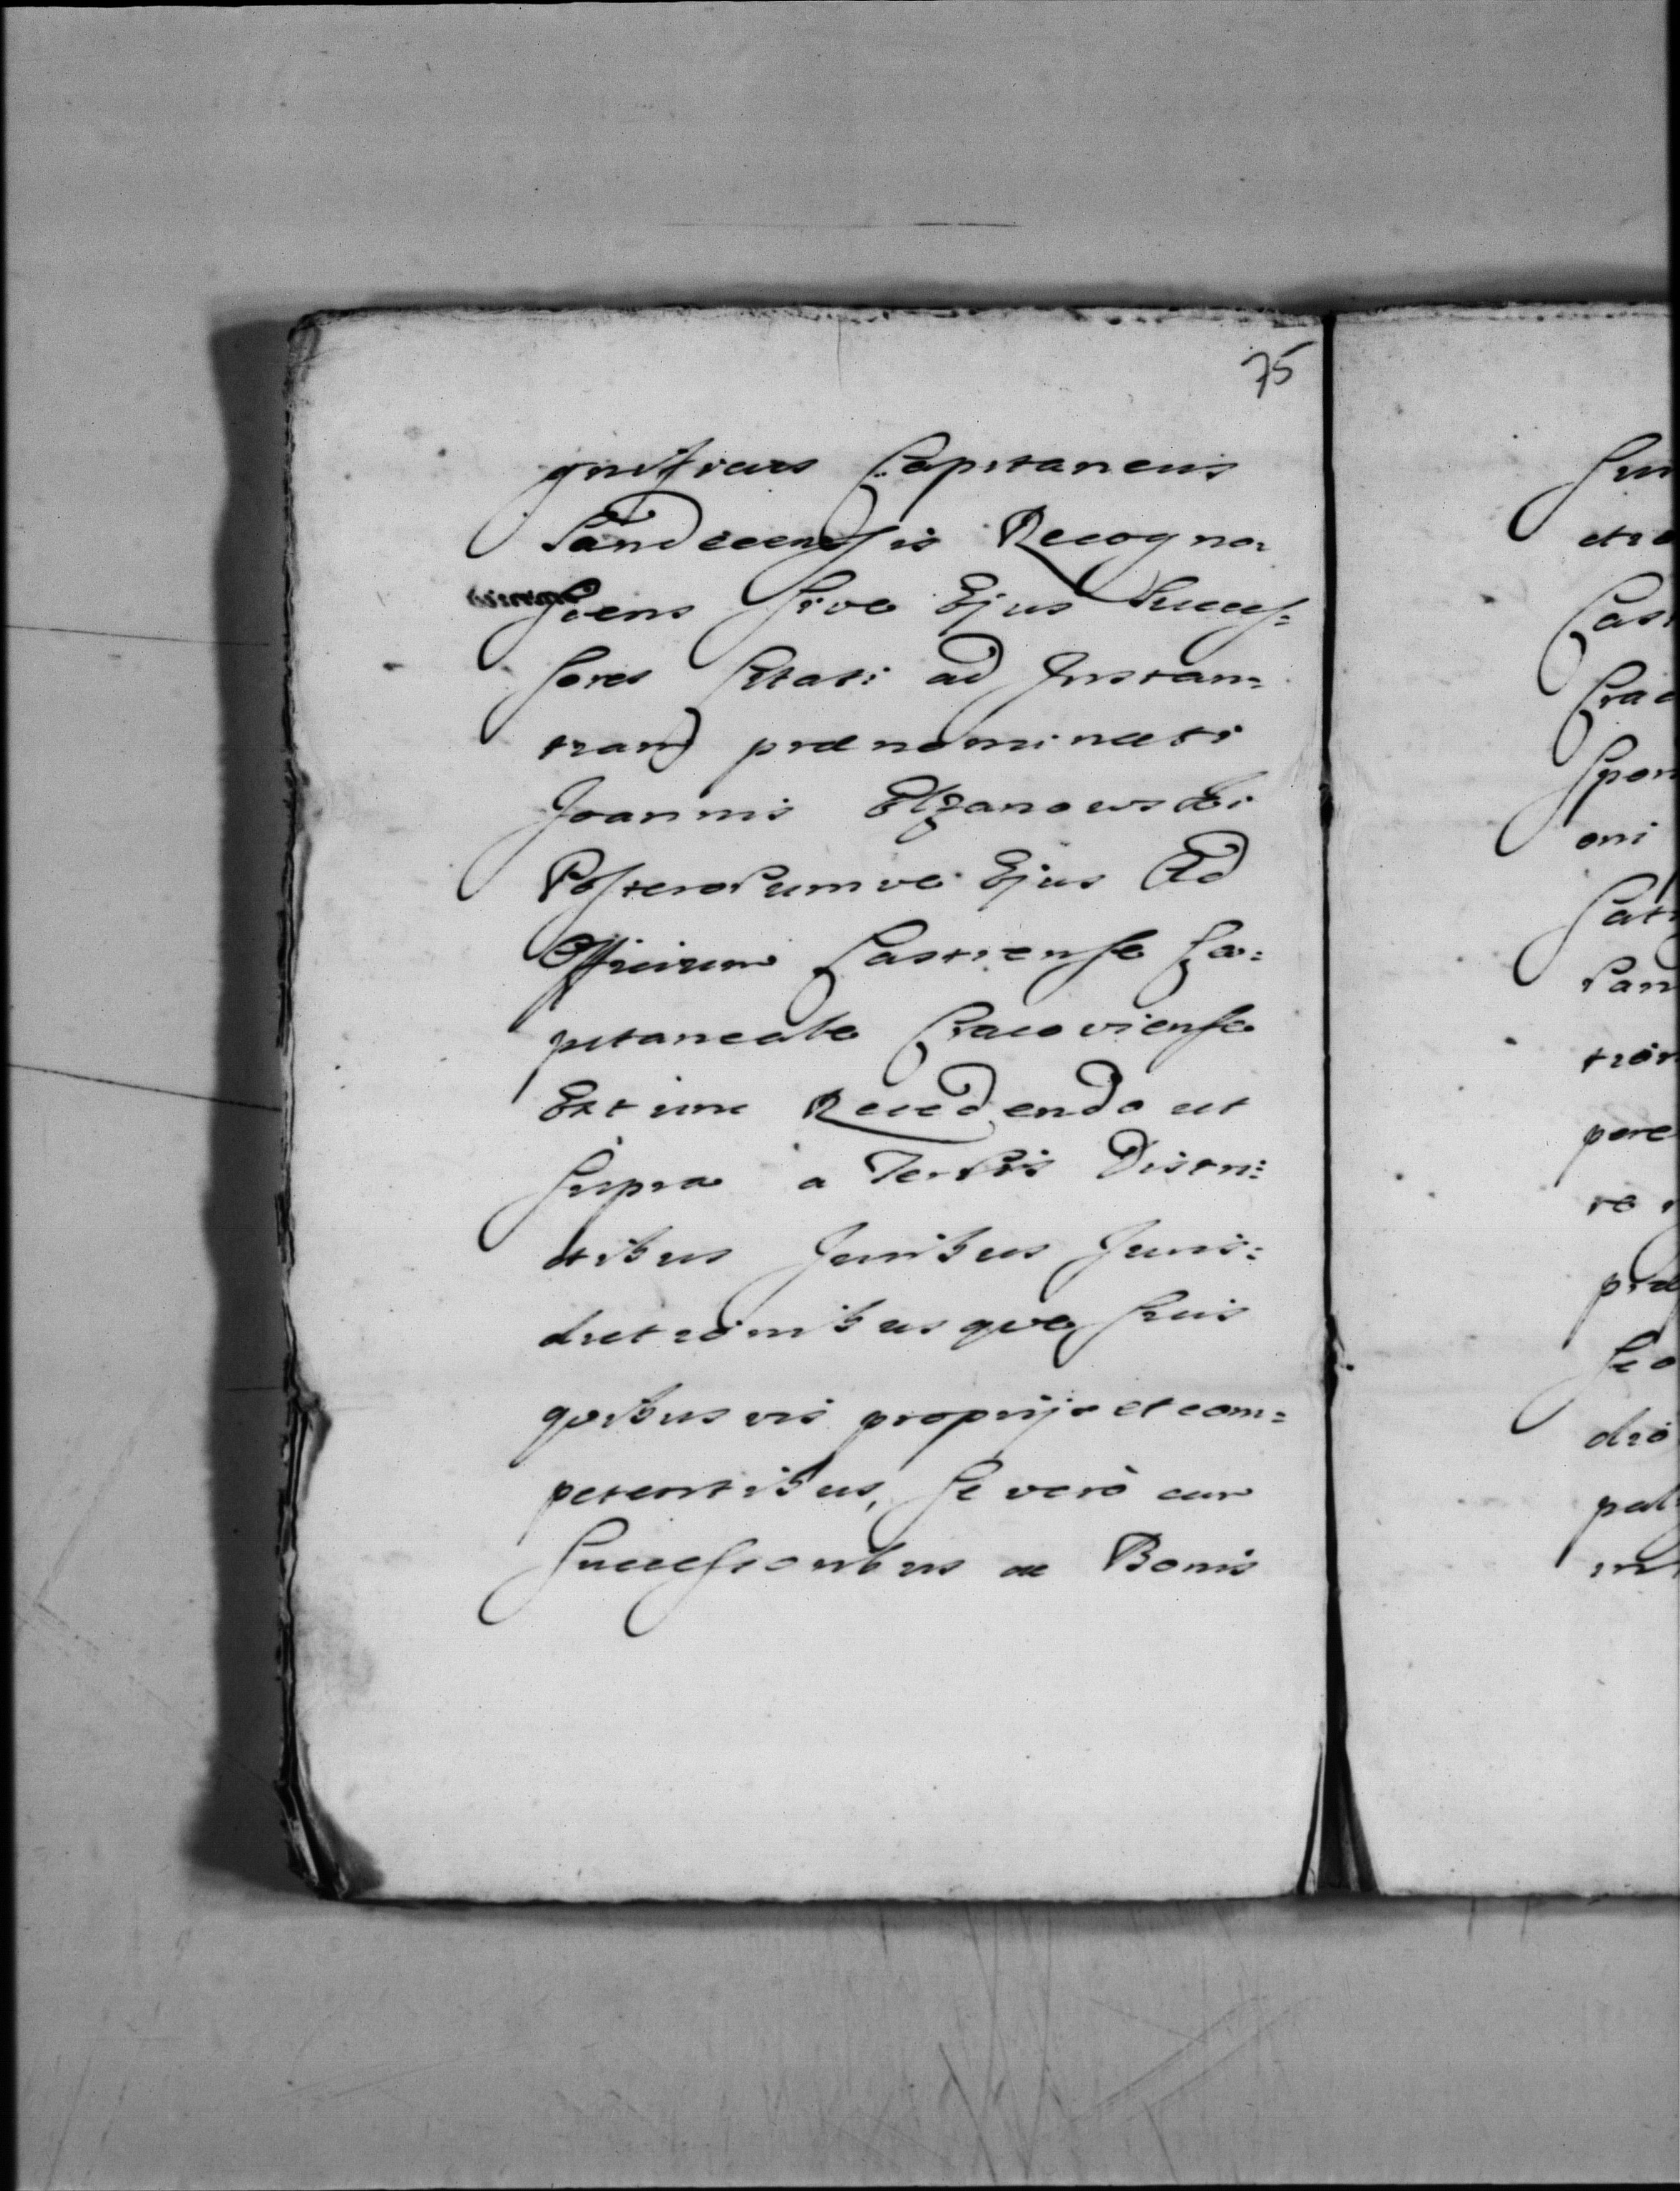 75
gnificus Capitaneus
Sandecensis Recogno:
scens sive Ejus Succes:
sores Citati ad Instan:
tiam praenominati
Joannis Elzanowski
Posterorumve Ejus Ad
Officium Castrense Ca:
pitaneale Cracoviense
Extunc Recedendo ut
supra a Terris Distri:
ctibus Juribus Juris:
dictionibusque suis
quibusvis proprijs et com:
petentibus, se verò cum
Successoribus ac Bonis
Cas
Crac
Spon
oni